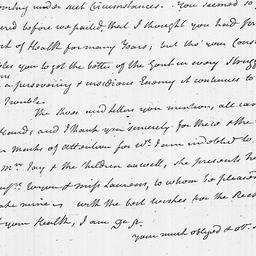 under such Circumstances. You seemed to
before we parted, that I thought you had
of Health for many Years; but tho' your
you to get the better of the Gout in every
a persevering & insidious Enemy it continues to
Trouble.
The Shoes and Letters you mention, all
and I thank you sincerely for those & the
Marks of attention for wh. I am indebted to
Mrs. Jay & the Children are well, she presents her
to & Miss Laurens, to whom be pleased
make mine & with the best wishes for the
of your Health, I am Dr. Sr.
your much obliged & ob.